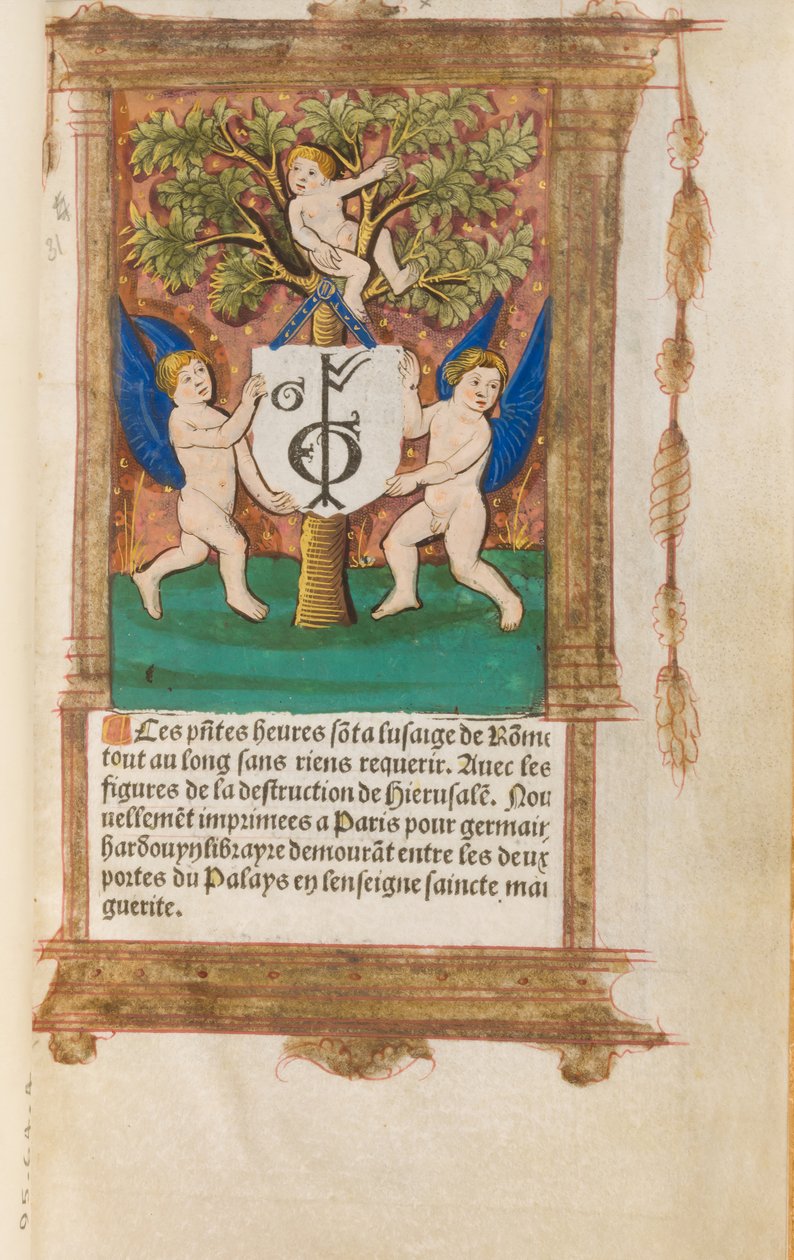 31
Ces pñtes heures sõt a lusaige de Rõme
tout au long sans riens requerir. Auec les
figures de la destruction de Hierusalẽ. Nou
uellemẽt imprimees a Paris pour germain
hardouyn librayre demourãt entre les deux
portes du Palays en lenseigne saincte mar
guerite.
95.C4.2